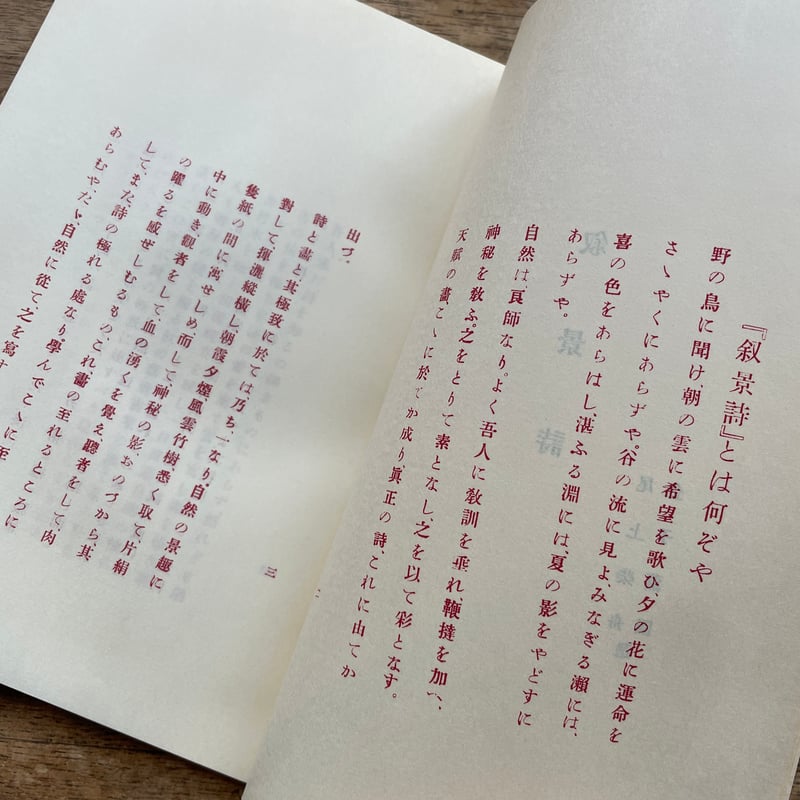 『叙景詩』とは何ぞや
野の鳥に聞け、朝の雲に希望を歌ひ、夕の花に運命を
さゝやくにあらずや。谷の流に見よ、みなぎる瀬には、
喜の色をあらはし、湛ふる淵には、夏の影をやどすに
あらずや。
自然は、良師なり。よく吾人に教訓を垂れ、鞭撻を加へ、
神秘を敎ふ。之をとりて素となし、之を以て彩となす。
天賦の畫こゝに於てか成り眞正の詩、これに由てか
出づ。
詩と畫と其極致に於ては乃ち、一なり、自然の景趣に
對して揮灑縱横し、朝霞夕煙、風雲竹樹悉く取て片絹
隻紙の間に寓せしめ、而して、神秘の影、おのづから、其
中に動き觀者をして、血の湧くを覺え、聽者をして肉
の躍るを感ぜしむるもの、これ、畫の至れるところに
して、また、詩の極れる處なり、學んでこゝに至
あらむや、たゞ、自然に從て之を寫す
三
叙景詩
尾上柴舟